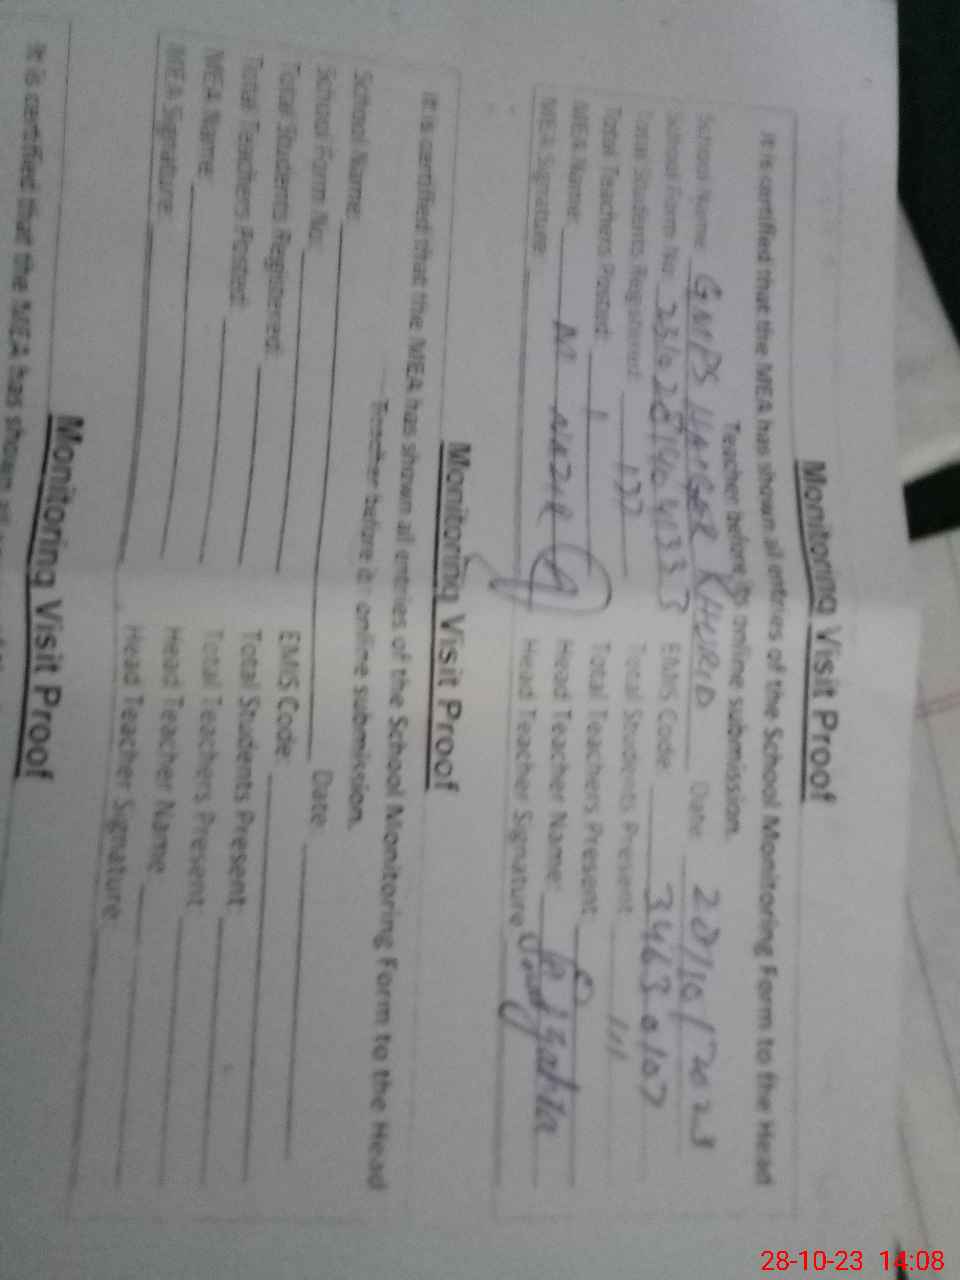 Monitoring Visit Proof
It is certified that the MEA has shown all entries of the School Monitoring Form to the Head
Teacher before its online submission.
School Name: GMPS KHURD Date: 28/10/2023
School Form No: EMIS Code: 34630107
Total Students Registered: 137 Total Students Present: 111
Total Teachers Posted: 1 Total Teachers Present:
MEA Name: M NAZIR Head Teacher Name:
MEA Signature: Head Teacher Signature:
Monitoring Visit Proof
It is certified that the MEA has shown all entries of the School Monitoring Form to the Head
Teacher before it online submission.
School Name: Date:
School Form No: EMIS Code:
Total Students Registered: Total Students Present:
Total Teachers Posted: Total Teachers Present:
MEA Name: Head Teacher Name:
MEA Signature: Head Teacher Signature:
Monitoring Visit Proof
It is certified that the MEA has shown
28-10-23 14:08